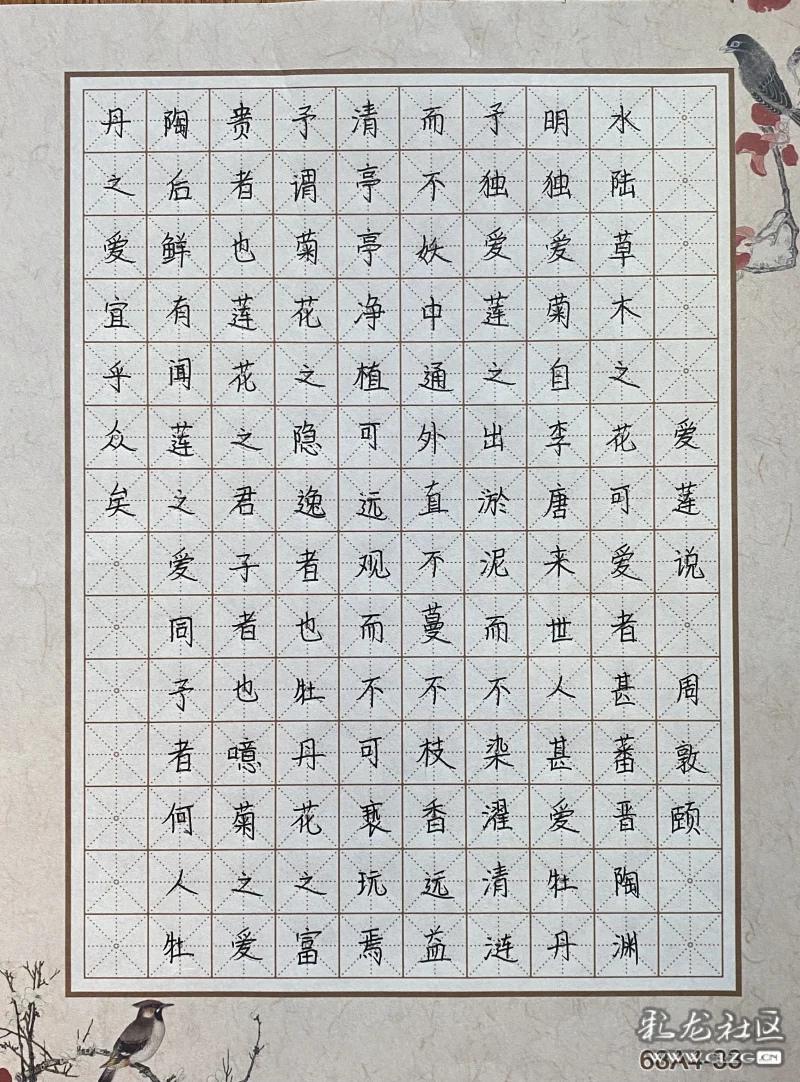 爱莲说 周敦颐
水陆草木之花可爱者甚蕃晋陶渊
明独爱菊自李唐来世人甚爱牡丹
予独爱莲之出淤泥而不染濯清涟
而不妖中通外直不蔓不枝香远益
清亭亭净植可远观而不可亵玩焉
予谓菊花之隐逸者也牡丹花之富
贵者也莲花之君子者也噫菊之爱
陶后鲜有闻莲之爱同予者何人牡
丹之爱宜乎众矣
彩龙社区
www.CLZG.CN